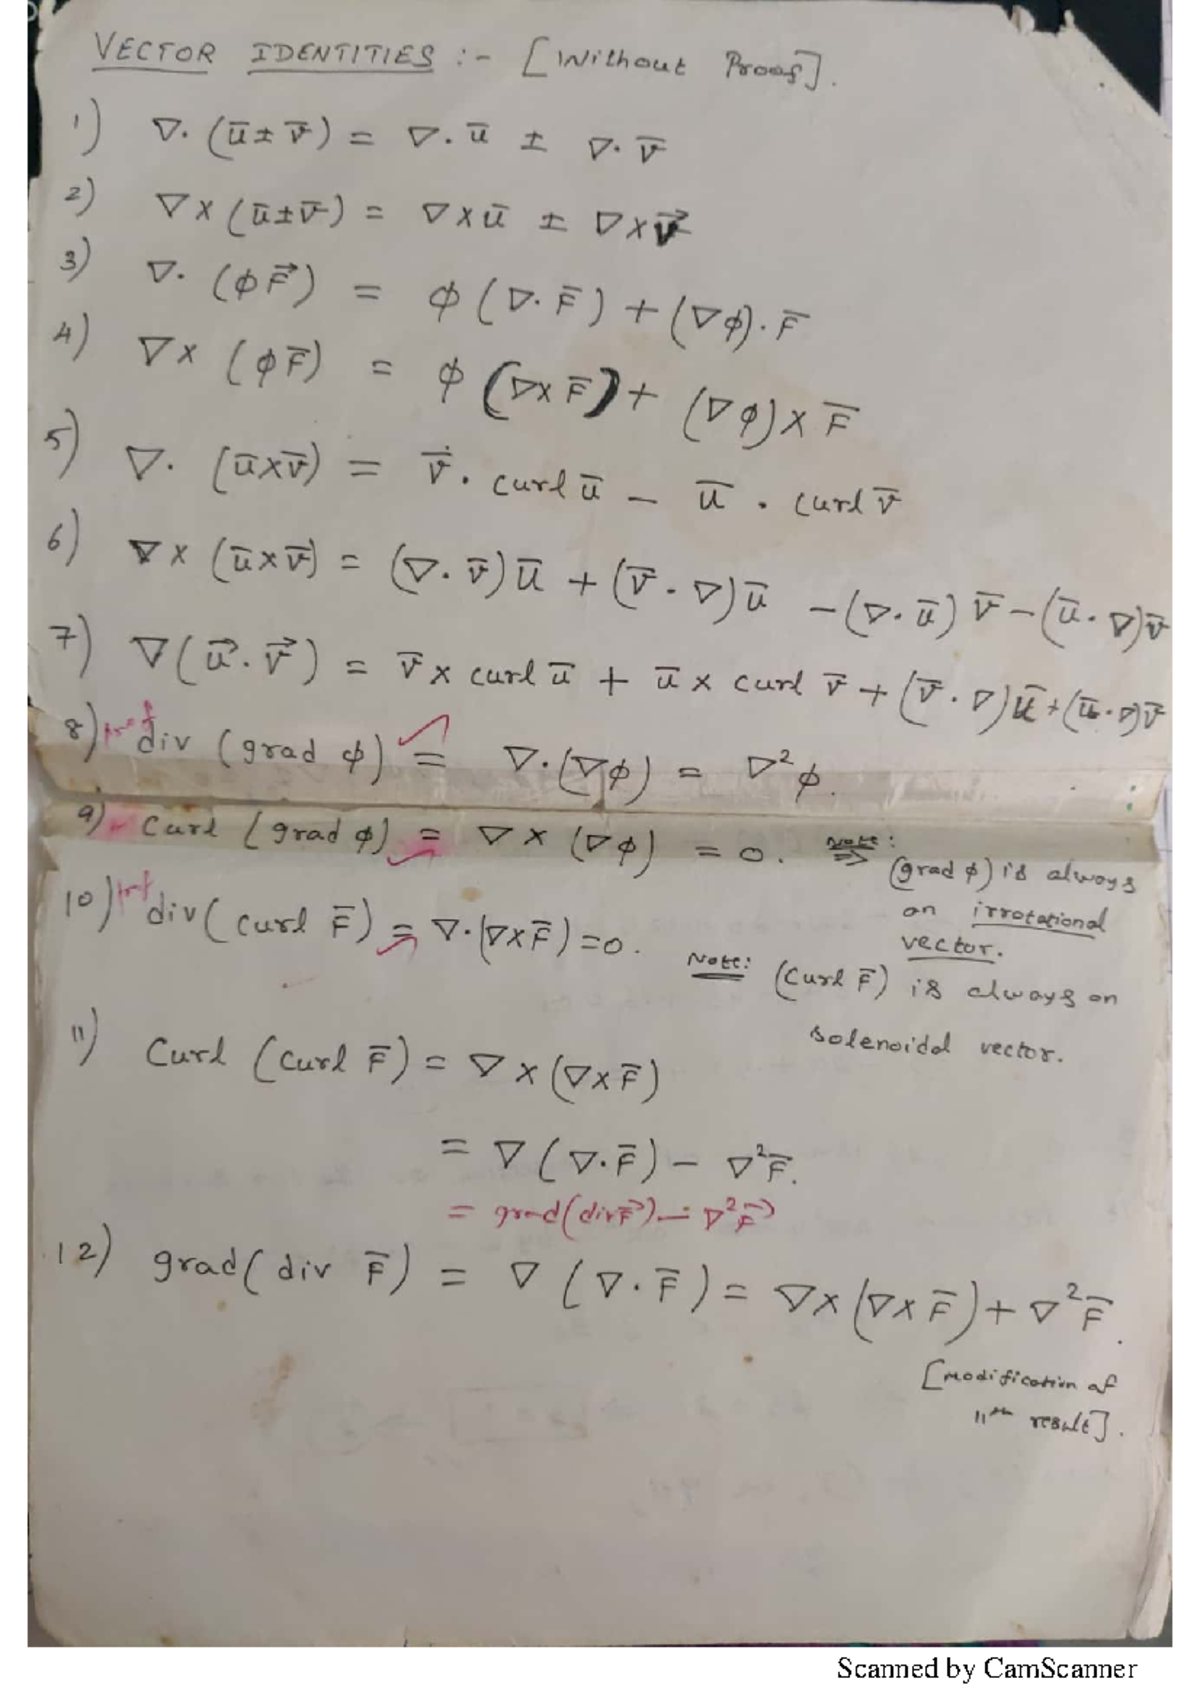 VECTOR IDENTITIES :- [Without Proof].
1) ∇. (ū ± v̄) = ∇. ū ± ∇. v̄
2) ∇× (ū ± v̄) = ∇×ū ± ∇×v⃗
3) ∇. (φF⃗) = φ (∇. F̄) + (∇φ). F̄
4) ∇× (φF̄) = φ (∇×F̄) + (∇φ)× F̄
5) ∇. (ū×v̄) = v̄ . curl ū – ū . curl v̄
6) ∇× (ū×v̄) = (∇. v̄)ū + (v̄ . ∇)ū – (∇. ū) v̄ – (ū. ∇)v̄
7) ∇(u⃗. v⃗) = v̄× curl ū + ū× curl v̄ + (v̄ . ∇)ū + (ū. ∇)v̄
8) prf div (grad φ) = ∇. (∇φ) = ∇²φ.
9) Curl (grad φ) = ∇ × (∇φ) = 0. Note: ⇒ (grad φ) is always
an irrotational
vector.
10) prf div (curl F̄) = ∇. (∇×F̄) = 0. Note: (Curl F̄) is always an
solenoidal vector.
11) Curl (curl F̄) = ∇ × (∇×F̄)
= ∇ (∇. F̄) – ∇²F̄.
= grad (div F⃗) – ∇²F⃗
12) grad (div F̄) = ∇ (∇. F̄) = ∇× (∇×F̄) + ∇²F̄.
[modification of
11th result].
Scanned by CamScanner